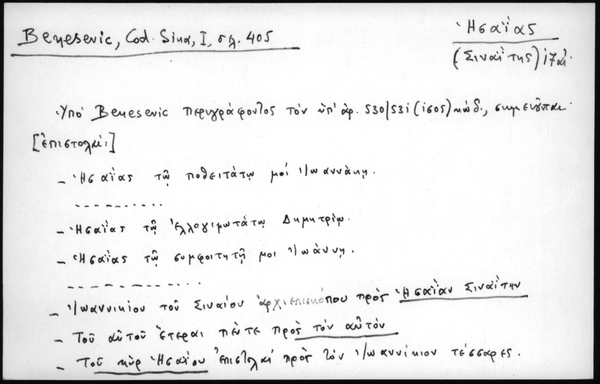 Benesevic, Cod. Sina, I, σλ. 405
Ἡσαΐας
(Σιναΐτης) ιζ αἰ.
Ὑπό Benesevic περιγράφοντος τὸν ὑπ' ἀρ. 530/531 (ισος) κώδ., σημειοῦται·
[ἐπιστολαί:]
- Ἡσαΐας τῷ ποθεινοτάτῳ μοι Ἰωαννάκῃ.
- - - - - - - - - -
- Ἡσαΐας τῷ Ἐλλογιμωτάτῳ Δημητρίῳ.
- Ἡσαΐας τῷ συμφοιτητῇ μοι Ἰωάννῃ.
- - - - - - - - - -
- Ἰωαννικίου τοῦ Σιναίου ἀρχιεπισκόπου πρὸς Ἡσαΐαν Σιναΐτην
- Τοῦ αὐτοῦ ἕτεραι πέντε πρὸς τὸν αὐτόν
- Τοῦ κὺρ Ἡσαΐου ἐπιστολαί πρὸς τὸν Ἰωαννίκιον τέσσαρες.